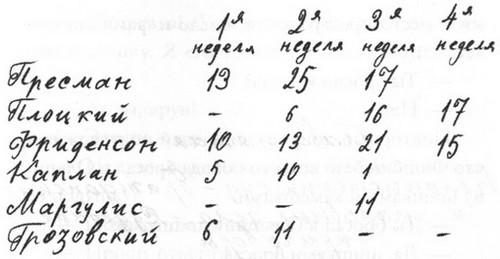 1я 2я 3я 4я
неделя неделя неделя неделя
Пресман 13 25 17
Плоцкий - 6 16 17
Фриденсон 10 13 21 15
Каплан 5 10 - -
Маргулис - - 11 -
Грозовский 6 11 - -